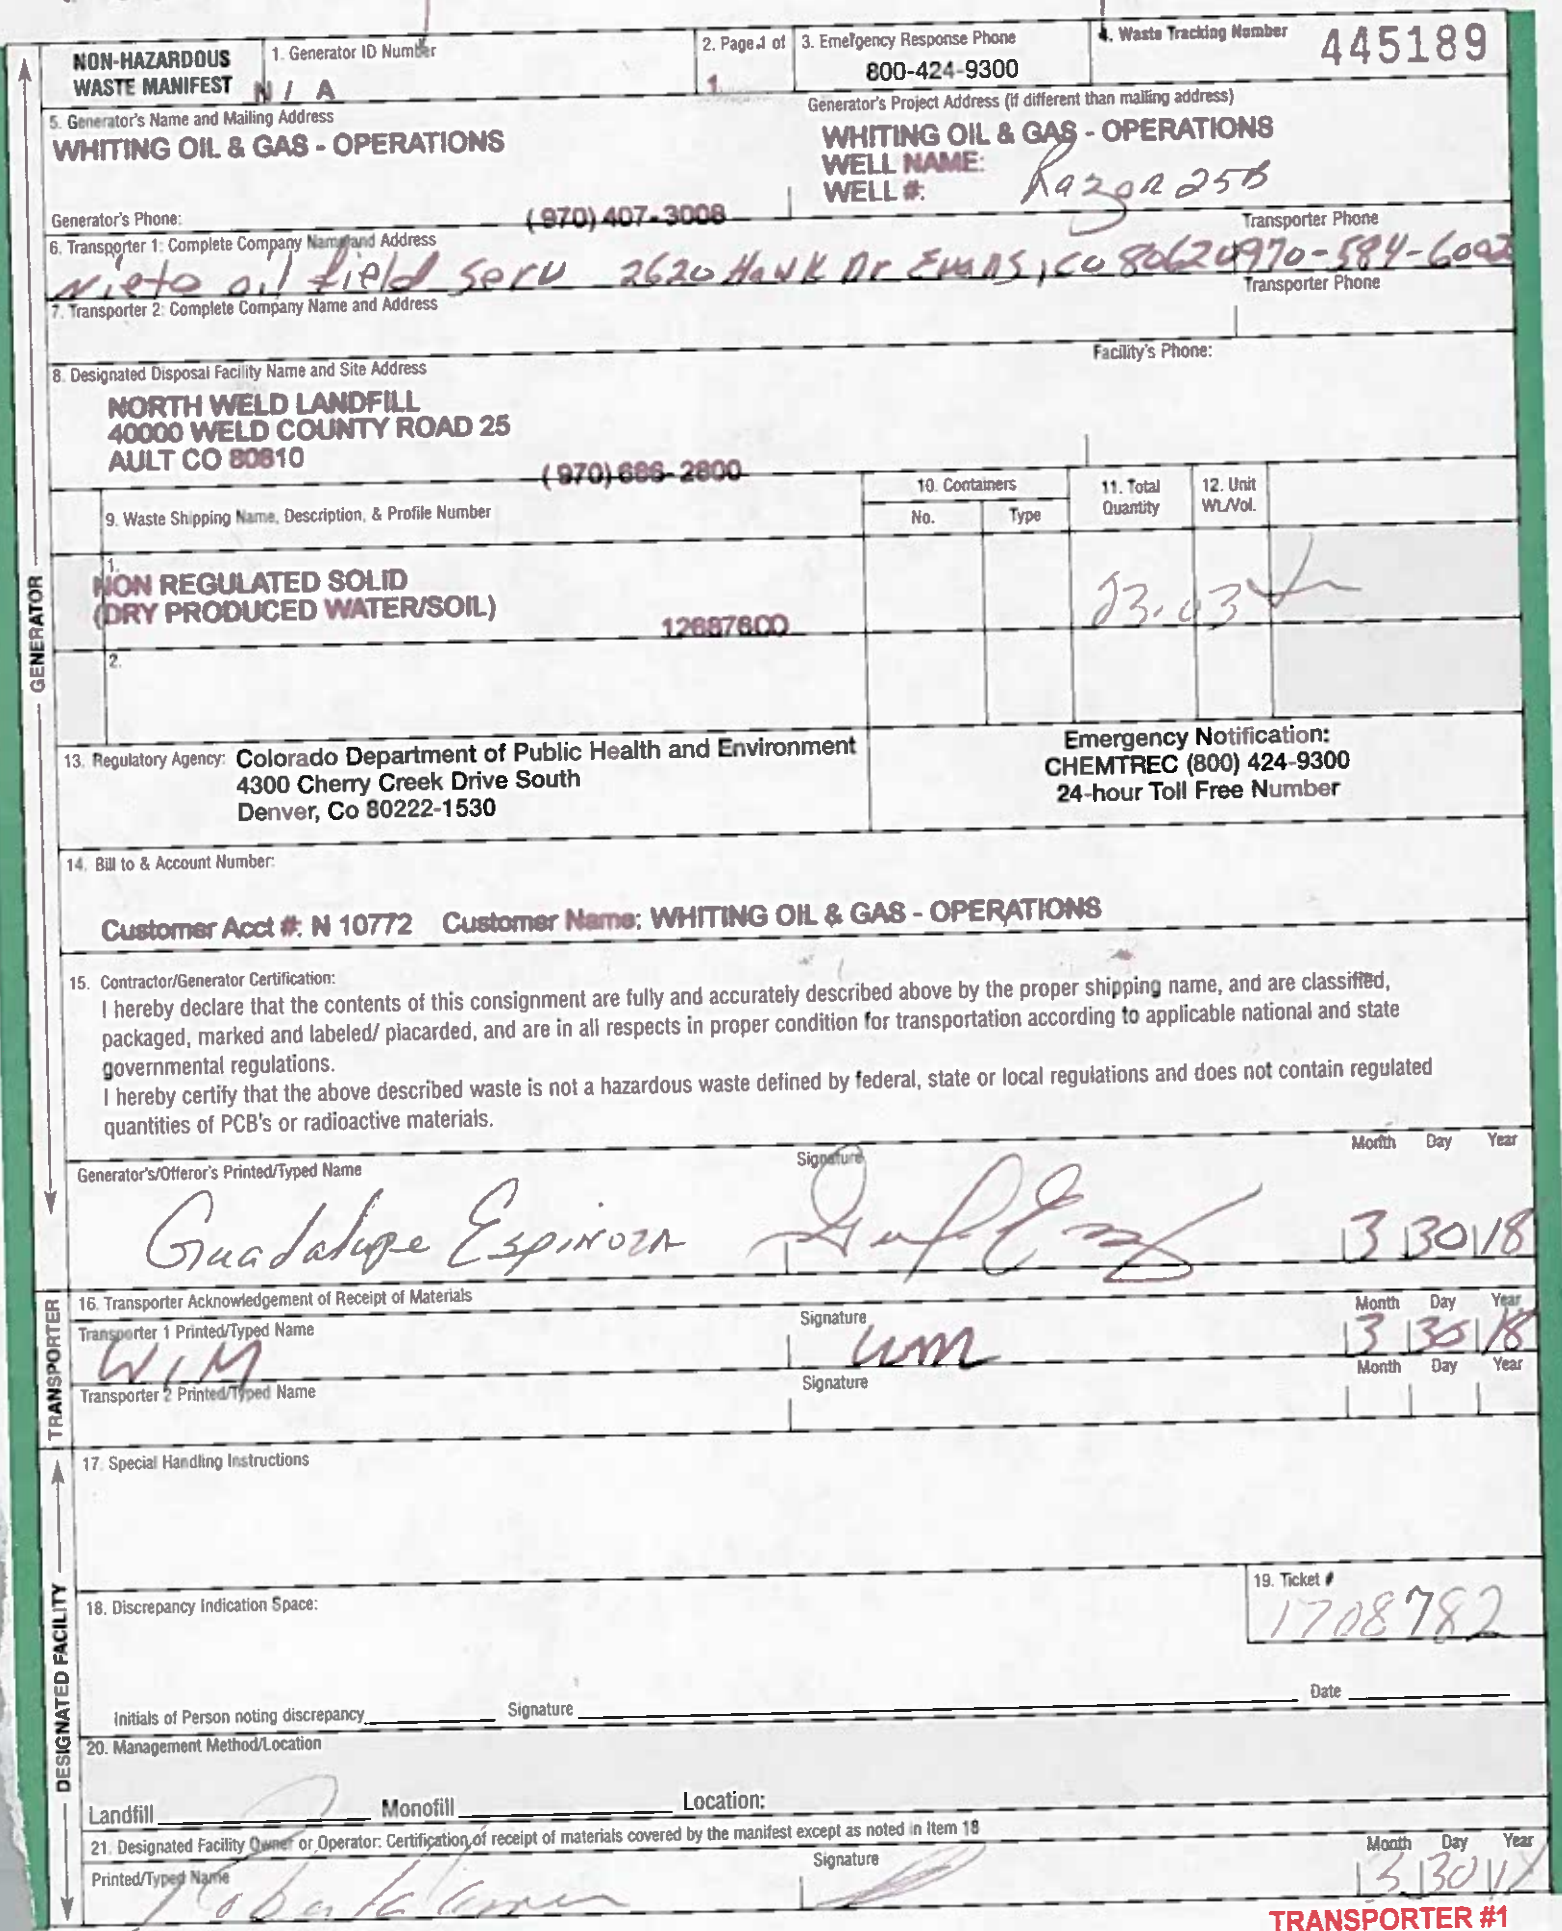 NON-HAZARDOUS WASTE MANIFEST
1. Generator ID Number
N / A
2. Page 1 of
1
3. Emergency Response Phone
800-424-9300
4. Waste Tracking Number
445189
5. Generator's Name and Mailing Address
WHITING OIL & GAS - OPERATIONS
Generator's Project Address (if different than mailing address)
WHITING OIL & GAS - OPERATIONS
WELL NAME:
WELL #: Razor 25B
Generator's Phone: (970) 407-3008
6. Transporter 1: Complete Company Name and Address
Transporter Phone
Nieto oil field serv 2620 Hawk Dr Evans, co 80620 970-584-6002
7. Transporter 2: Complete Company Name and Address
Transporter Phone
8. Designated Disposal Facility Name and Site Address
Facility's Phone:
NORTH WELD LANDFILL
40000 WELD COUNTY ROAD 25
AULT CO 80610
(970) 686-2800
9. Waste Shipping Name, Description, & Profile Number
10. Containers
No.
Type
11. Total Quantity
12. Unit Wt./Vol.
1.
NON REGULATED SOLID
(DRY PRODUCED WATER/SOIL)
12687600
23.03
2.
13. Regulatory Agency: Colorado Department of Public Health and Environment
4300 Cherry Creek Drive South
Denver, Co 80222-1530
Emergency Notification:
CHEMTREC (800) 424-9300
24-hour Toll Free Number
14. Bill to & Account Number:
Customer Acct #: N 10772 Customer Name: WHITING OIL & GAS - OPERATIONS
15. Contractor/Generator Certification:
I hereby declare that the contents of this consignment are fully and accurately described above by the proper shipping name, and are classified,
packaged, marked and labeled/ placarded, and are in all respects in proper condition for transportation according to applicable national and state
governmental regulations.
I hereby certify that the above described waste is not a hazardous waste defined by federal, state or local regulations and does not contain regulated
quantities of PCB's or radioactive materials.
Generator's/Offeror's Printed/Typed Name
Signature
Month Day Year
Guadalupe Espinoza
3 30 18
16. Transporter Acknowledgement of Receipt of Materials
Transporter 1 Printed/Typed Name
Signature
Month Day Year
3 30 18
Transporter 2 Printed/Typed Name
Signature
Month Day Year
17. Special Handling Instructions
18. Discrepancy Indication Space:
19. Ticket #
1708782
Initials of Person noting discrepancy
Signature
Date
20. Management Method/Location
Landfill
Monofill
Location:
21. Designated Facility Owner or Operator: Certification of receipt of materials covered by the manifest except as noted in Item 18
Printed/Typed Name
Signature
Month Day Year
3 30 18
GENERATOR
TRANSPORTER
DESIGNATED FACILITY
TRANSPORTER #1